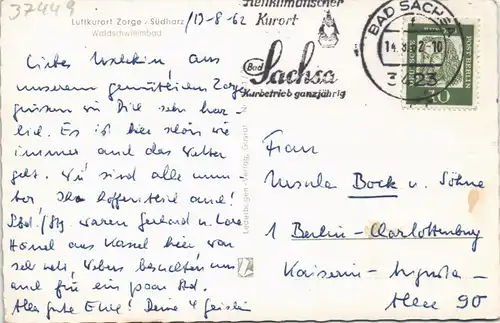 37449
Luftkurort Zorge - Südharz
Waldschwimmbad
13-8-62
Heilklimatischer
Kurort
Bad
Sachsa
Kurbetrieb ganzjährig
BAD SACHSA
14.8.62-10
POST BERLIN
10
Liebes aus
unserem gemütlichen Zorge
grüssen wir Dich sehr herz-
lich. Es ist hier schön wie
immer und das Wetter
geht. Wir sind alle mun-
ter, Ihr hoffentlich auch!
waren Gerhard u. Lore
aus Kassel hier war
sehr nett, Webers besuchten uns
auch für ein paar Std.
Alles gute Euch! Deine 4
Frau
Ursula Bock u. Söhne
1 Berlin-Charlottenburg
Kaiserin-Augusta-
Allee 90